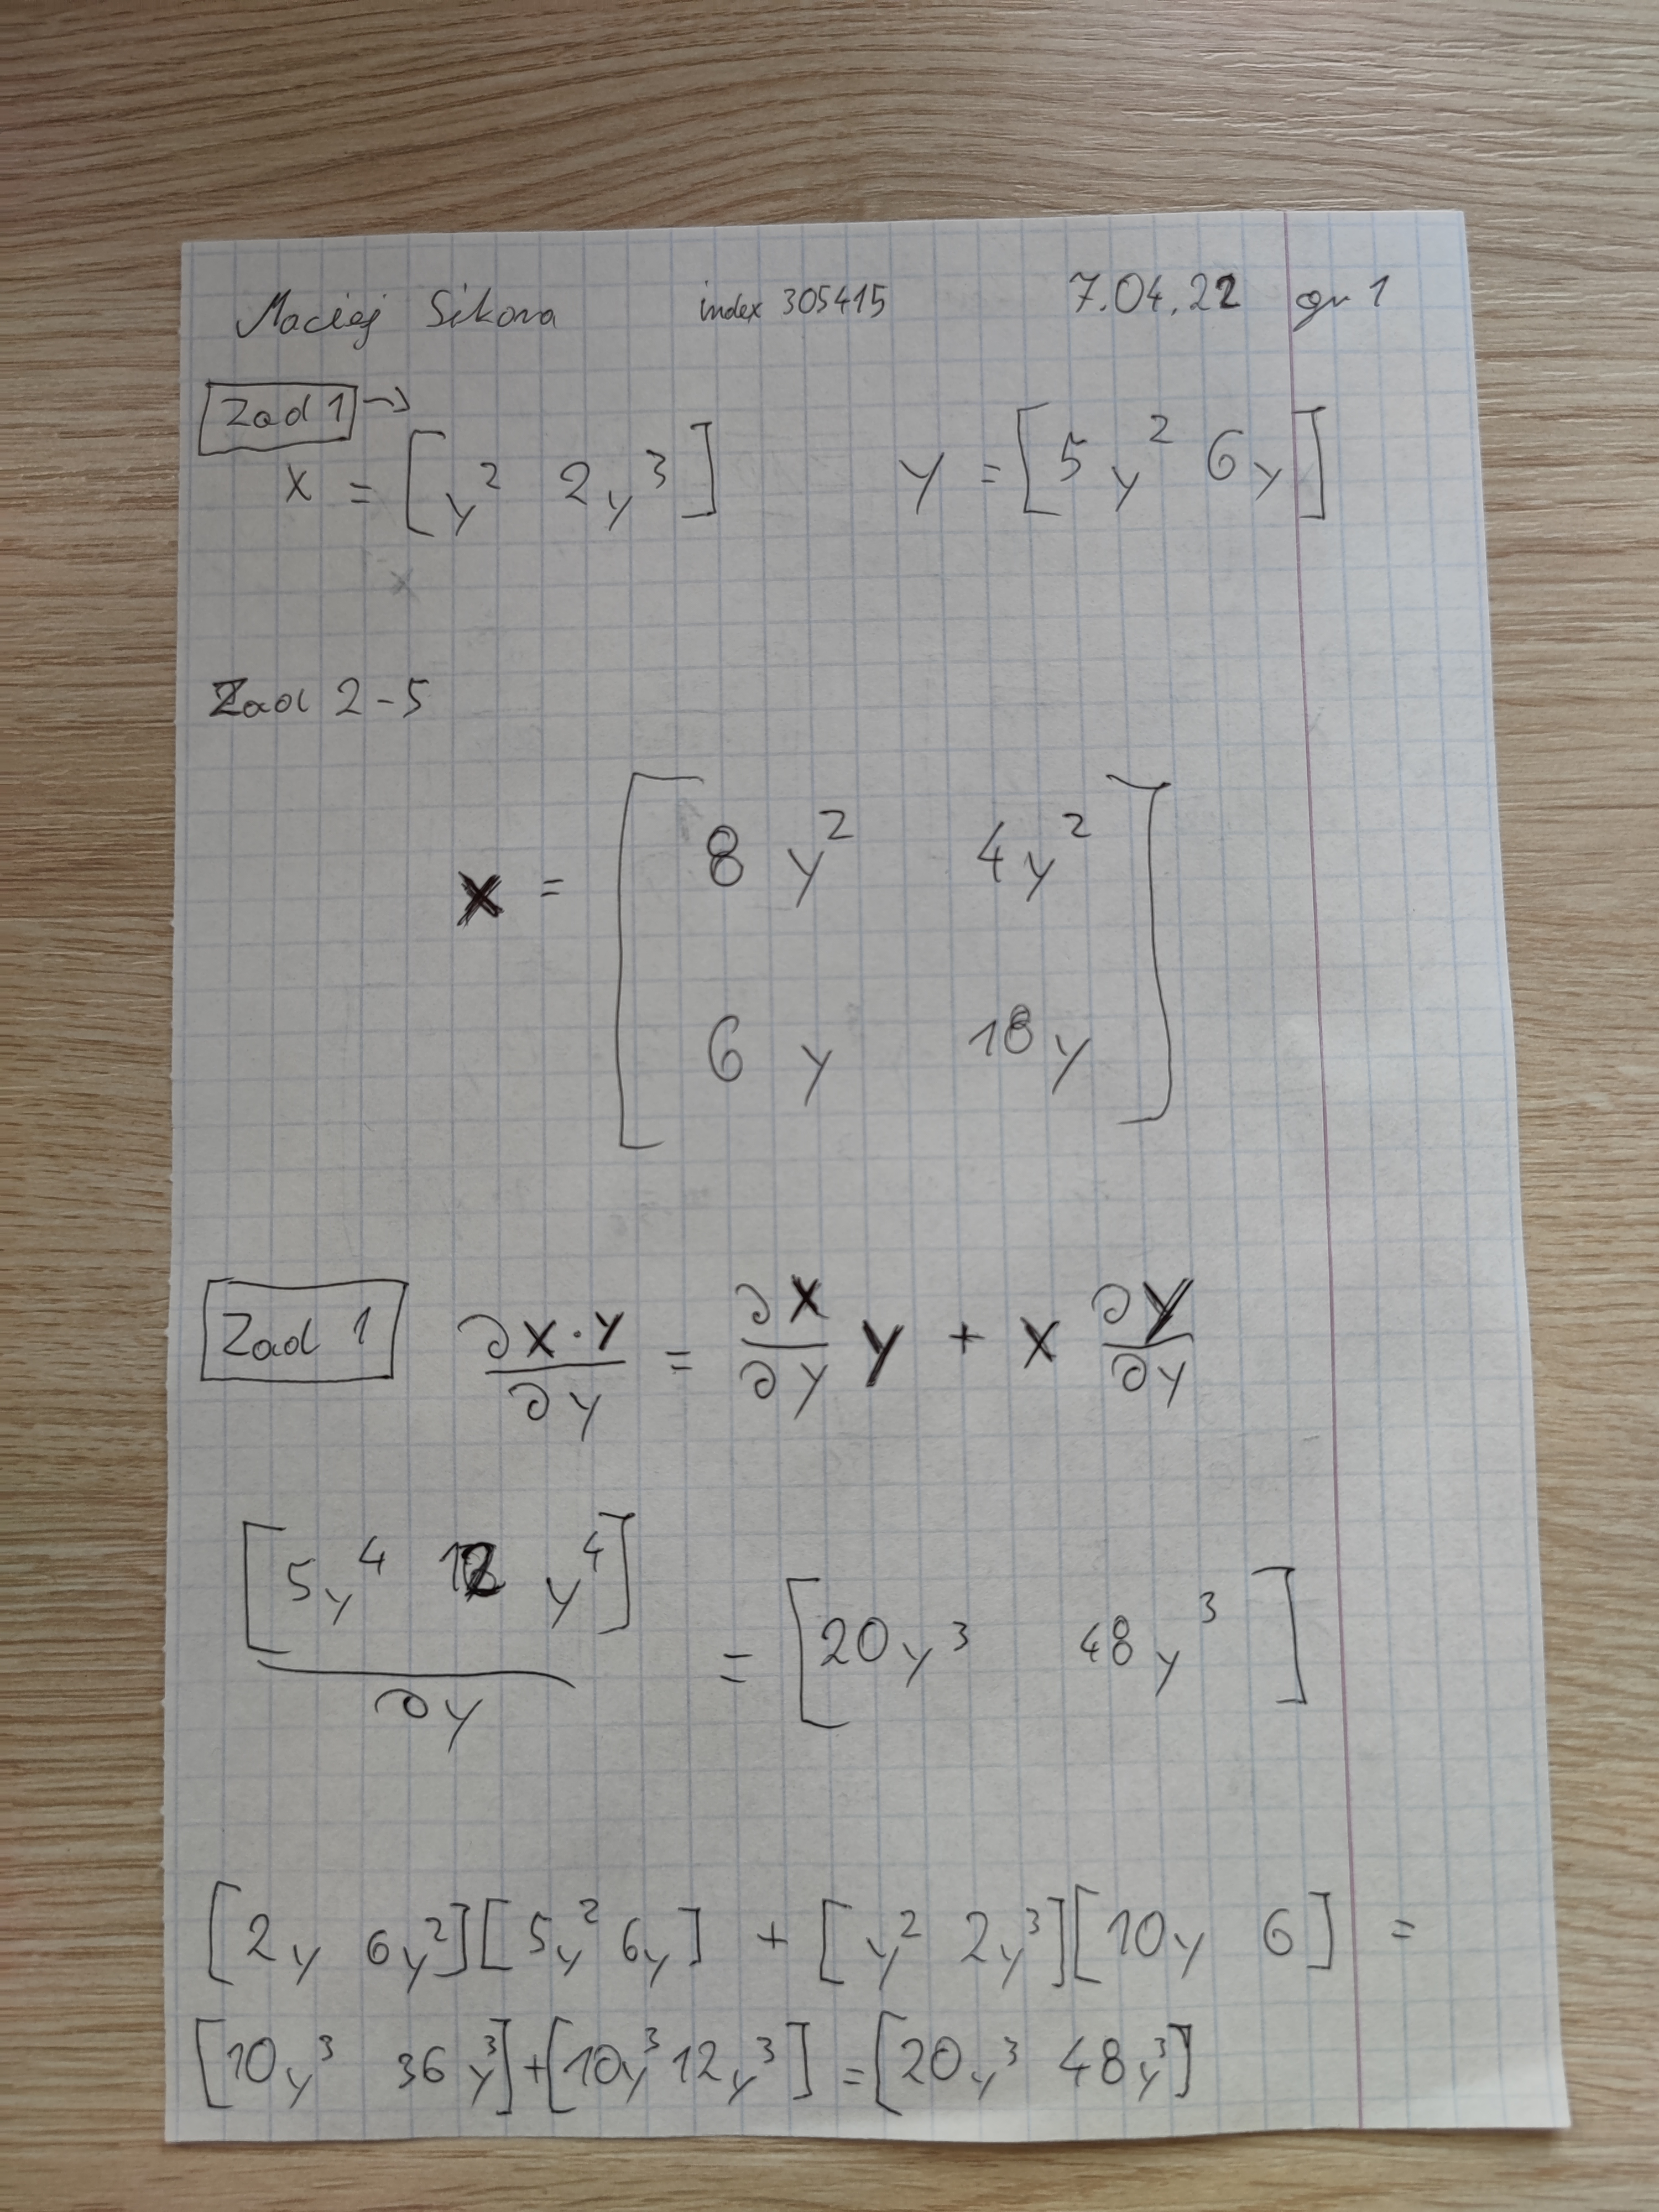 Maciej Sikora index 305415 7.04.22 gr 1
Zad 1 →
x = [y² 2y³] y = [5y² 6y]
x
Zad 2-5
x = [8y² 4y²
6y 18y]
Zad 1 ∂x·y/∂y = ∂x/∂y y + x ∂y/∂y
[5y⁴ 12y⁴]/∂y = [20y³ 48y³]
[2y 6y²][5y² 6y] + [y² 2y³][10y 6] =
[10y³ 36y³]+[10y³ 12y³] = [20y³ 48y³]